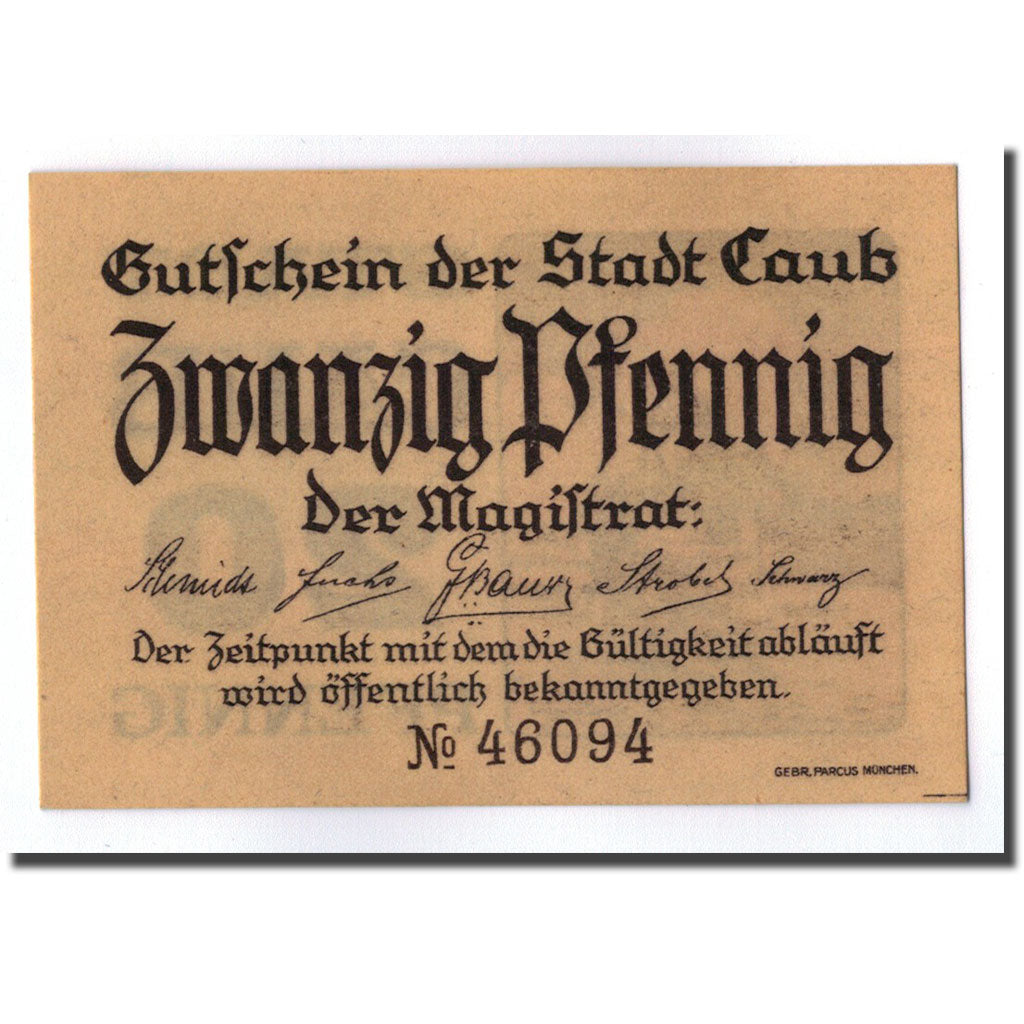 Gutschein der Stadt Caub
Zwanzig Pfennig
Der Magistrat:
Schmidt Fuchs Bauer Strobel Schwarz
Der Zeitpunkt mit dem die Gültigkeit abläuft
wird öffentlich bekanntgegeben.
No 46094
GEBR. PARCUS MÜNCHEN.